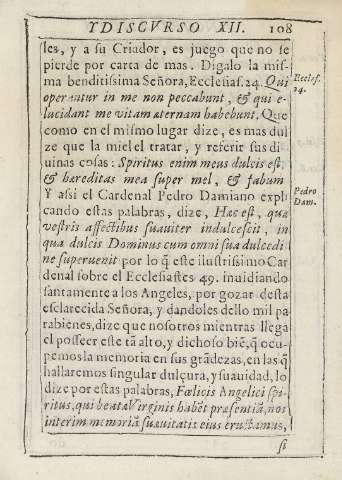 Y DISCVRSO XII. 108
les, y a su Criador, es juego que no se
pierde por carta de mas. Digalo la mis-
ma benditissima Señora, Ecclesias. 24. Qui
operantur in me non peccabunt, & qui e-
lucidant me vitam æternam habebunt, Que
como en el mismo lugar dize, es mas dul
ze que la miel el tratar, y referir sus di
uinas cosas: Spiritus enim meus dulcis est,
& hæreditas mea super mel, & fabum
Y assi el Cardenal Pedro Damiano expli
cando estas palabras, dize, Hæc est, quæ
vestris affectibus suauiter indulcescit, in
qua dulcis Dominus cum omni sua dulcedi
ne superuenit por lo q̃ este ilustrissimo Car
denal sobre el Ecclesiastes 49. inuidiando
santamente a los Angeles, por gozar desta
esclarecida Señora, y dandoles dello mil pa
rabienes, dize que nosotros mientras llega
el posseer este tã alto, y dichoso biẽ, q̃ ocu
pemos la memoria en sus grãdezas, en las q̃
hallaremos singular dulçura, y suauidad, lo
dize por estas palabras, Fœlicis Angelici spi-
ritus, qui beatæ Virginis habẽt præsentiã, nos
interim memoriã suauitatis eius eructamus,
si
Eccles.
24.
Pedro
Dam.